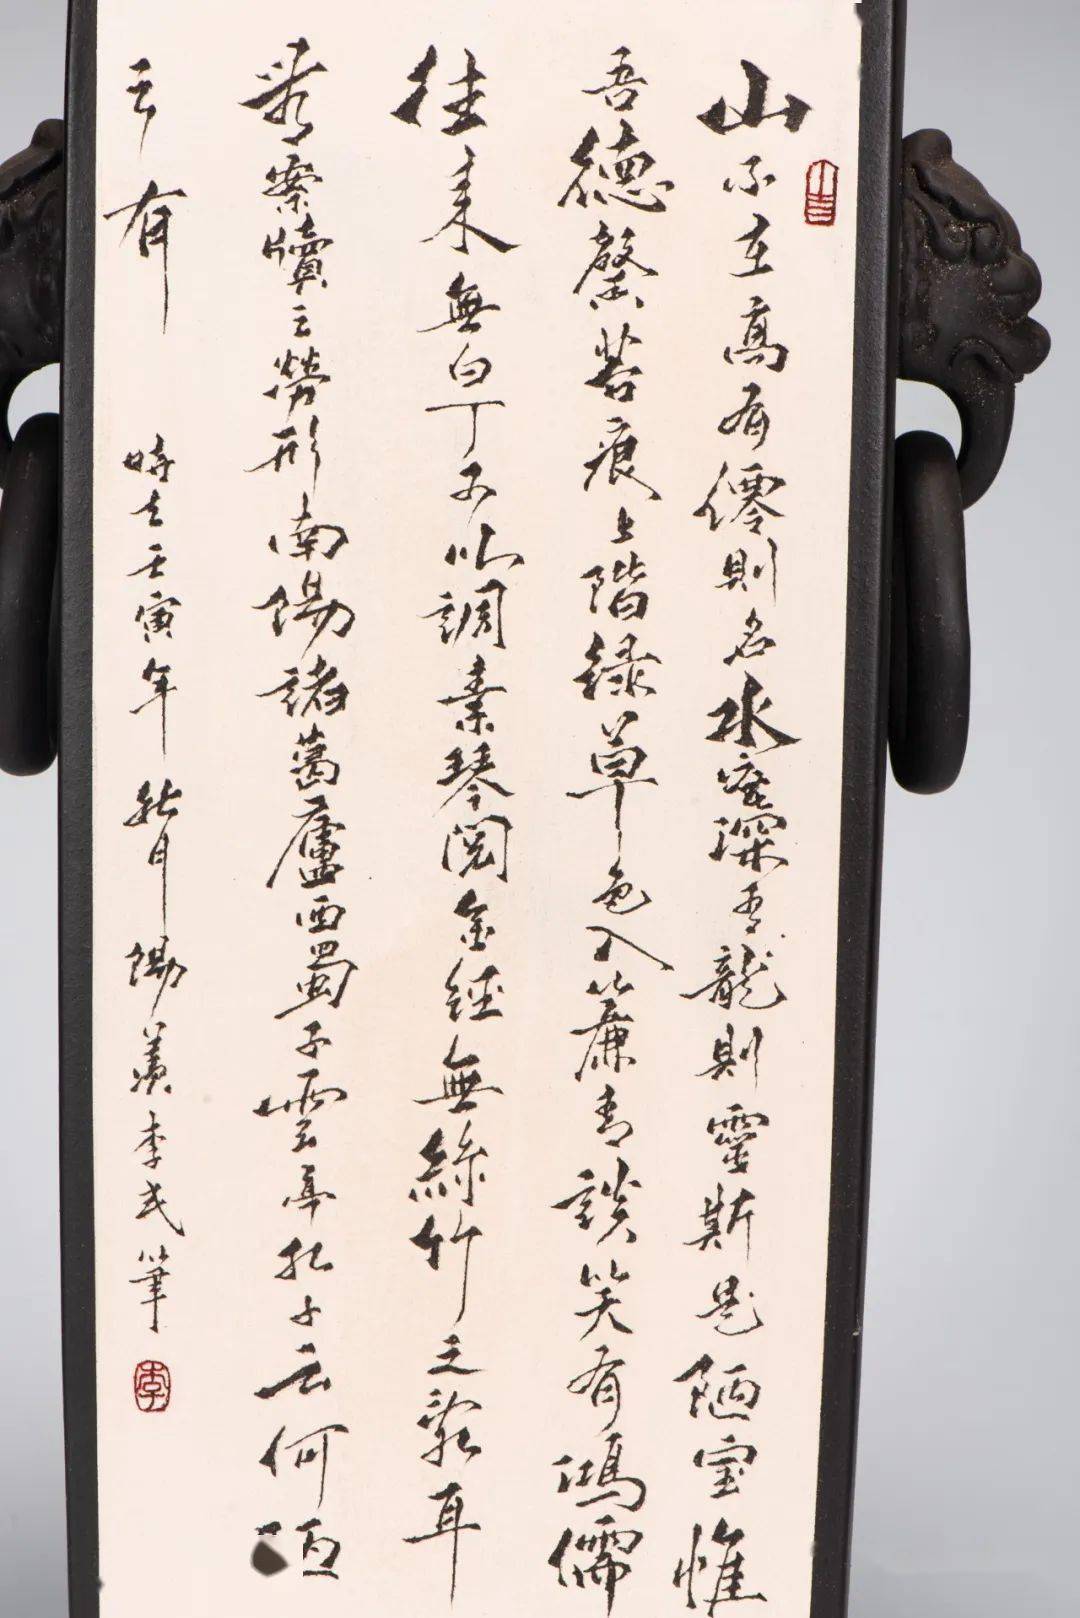 大吉
山不在高有僊則名水不在深有龍則靈斯是陋室惟
吾德馨苔痕上階綠草色入簾青談笑有鴻儒
往来無白丁可以調素琴閱金經無絲竹之亂耳
無案牘之勞形南陽諸葛廬西蜀子雲亭孔子云何陋
之有
時在壬寅年秋月陽羨李筆
李